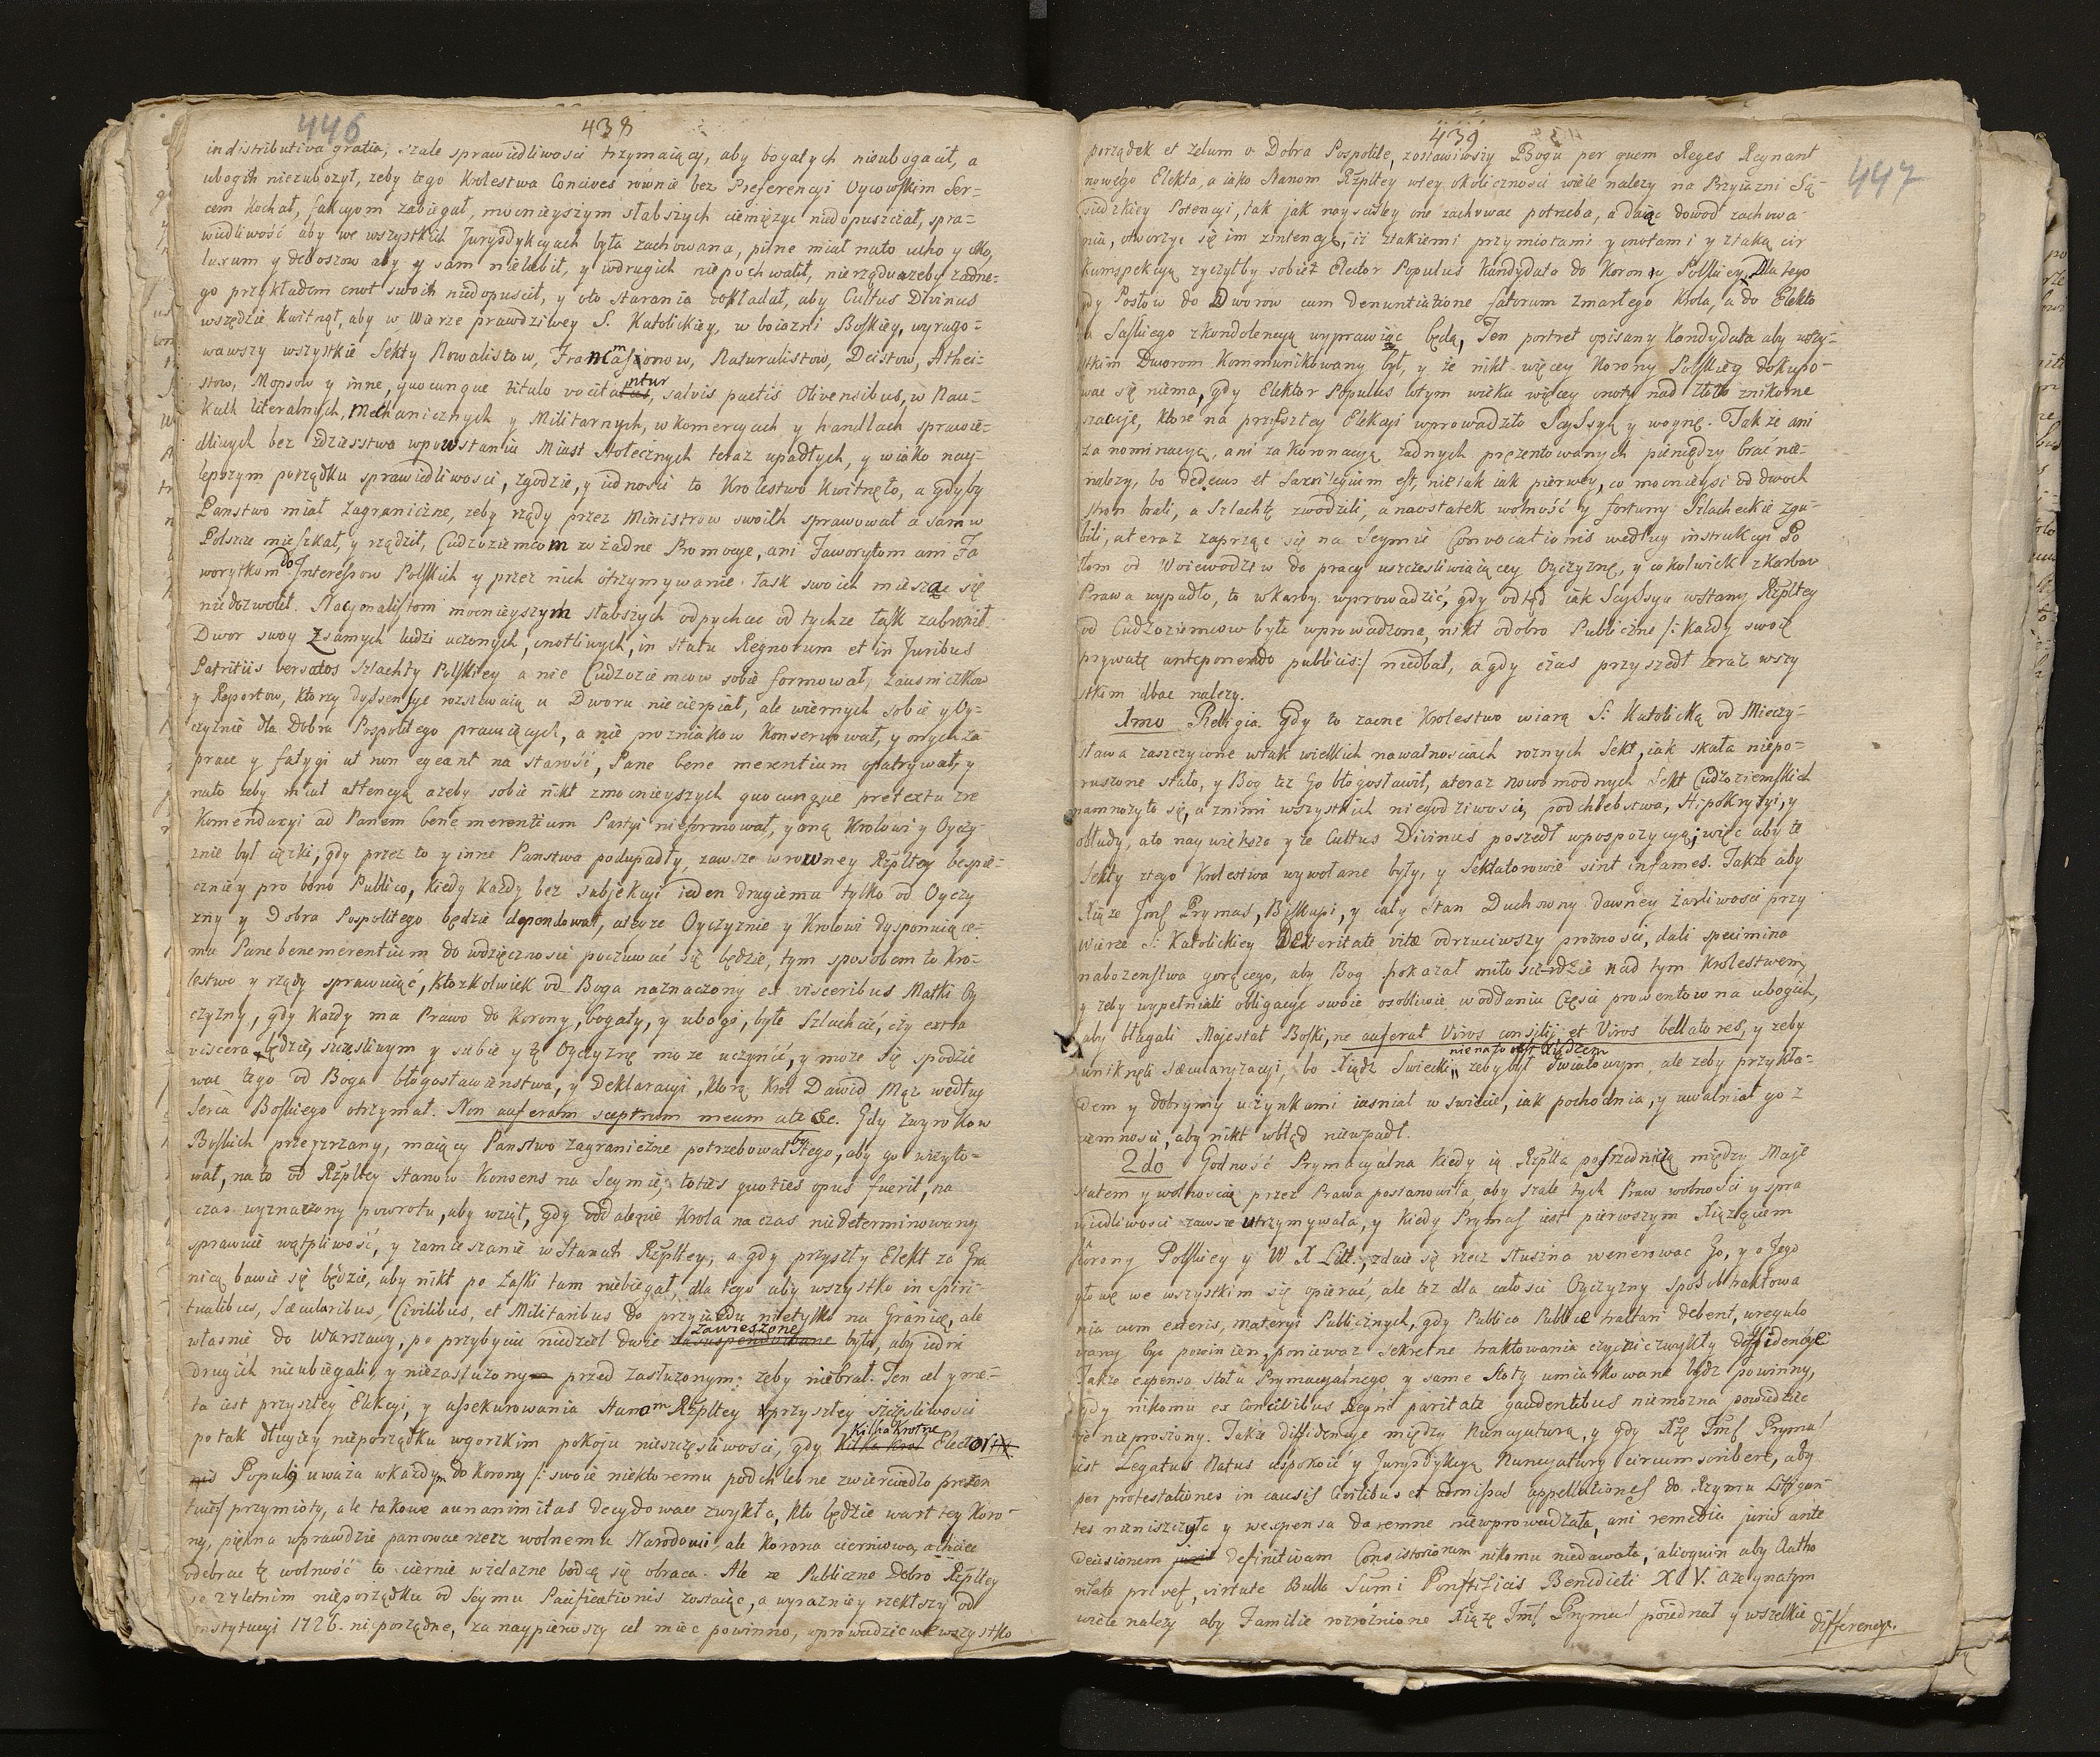 446
438
indistributiva gratia, szale sprawiedliwosci trzymaiący, aby bogatych nieubogacił, a
ubogich niezubozył, zeby tego Krolestwa Concives rownie bez Preferencyi Oycowskim Ser-
cem Kochał, fakcyom zabiegał, mocnieyszym słabszych ciemięzyc niedopuszczał, spra-
wiedliwość aby we wszystkich Jurysdykcyach była zachowana, pilne miał nato ucho y oko,
luxum y deboszow aby y sam nielubił, y wdrugich niepochwalił, nierządu azeby zadne-
go przykładem cnot swoich niedopuscił, y oto starania dokładał, aby Cultus Divinus
wszędzie kwitnął, aby w Wierze prawdziwey S. Katolickiey, w boiazni Boskiey, wyrugo-
wawszy wszystkie Sekty Nowalistow, Framasonow, Naturalistow, Deistow, Athei-
stow, Mopsow y inne, quocunque titulo vocitantur, salvis pactis Olivensibus, w Nau-
kach literalnych, Mechanicznych y Militarnych, w komercyach y handlach sprawie-
dliwych bez zdzierstwa wpowstaniu Miast stołecznych teraz upadłych, y wiako nay-
lepszym porządku sprawiedliwosci, zgodzie, y iednosci to Krolestwo kwitnęło, a gdyby
Panstwo miał Zagraniczne, zeby rządy przez Ministrow swoich sprawował a sam w
Polszcze mieszkał, y rządził, Cudzoziemcom zw żadne Promocye, ani Faworytom ani Fa
worytkom do Interessow Polskich y przez nich otrzymywanie łask swoich mieszac się
niedozwolił. Nacyonalistom mocnieyszym słabszych odpychac od tychze łask zabronił.
Dwor swoy z samych ludzi uczonych, cnotliwych, in statu Regnorum et in Juribus
Patritiis versatos Szlachty Polskiey a nie Cudzoziemcow sobie formował, zausnickow
y Raportow, ktorzy dyssensye rozsiewaią u Dworu niecierpiał, ale wiernych sobie y Oy-
czyznie dla Dobra Pospolitego pracuiących, a nie prozniakow konserwował, y onych za
prace y fatygi ut non egeant na starość, Pane bene merentium opatrywał, y
nato zeby miał attencyą azeby sobie nikt zmocnieyszych quocunque pretextu zre
komendacyi ad Panem bene merentium Partyi nieformował, y oną Krolowi y Oyczy-
znie był ciężki; gdy przez to y inne Panstwa podupadły, zawsze w rowney Rzpltey bespie-
czniey pro bono Publico, kiedy kazdy bez subjekcyi ieden drugiemu tylko od Oyczy
zny y Dobra Pospolitego będzie dependował, ategze Oyczyznie y Krolowi dysponuiące-
mu Pane benemerentium do wdzięcznosci poczuwać się będzie, tym sposobem to Kro-
lestwo y rządy sprawuiąć, ktozkolwiek od Boga naznaczony ex visceribus Matki Oy
czyzny, gdy kazdy ma Prawo do Korony, bogaty, y ubogi, byle Szlachcic, czy extra
viscera będzie, szczęsliwym y siebie y tę Oyczyznę moze uczynić, y moze się spodzie
wac tego od Boga błogosławienstwa, y Deklaracyi, ktorą Krol Dawid Mąz według
Serca Boskiego otrzymał. Non auferam sceptrum meum ate &c. Gdy Zwyrokow
Boskich przeyrzany, maiący Panstwo zagraniczne potrzebował by tego, aby go wizyto-
wał, na to od Rzpltey Stanow Konsens na Seymie, toties quoties opus fuerit, na
czas wyznaczony powrotu, aby wziął, gdy oddalenie Krola na czas niedeterminowany
sprawuie wątpliwość, y zamieszanie w Stanach Rzpltey, a gdy przyszły Elekt za Gra
nicą bawic się będzie, aby nikt po Łaski tam niebiegał, dla tego aby wszystko in Spiri-
tualibus, Sæcularibus, Civilibus, et Militaribus do przyiazdu nietylko na Granicę, ale
własnie do Warszawy, po przybyciu niedziel dwie zawieszone było, aby iedni
drugich nieubiegali, y niezasłuzony przed zasłuzonym zeby niebrał. Ten cel y me-
ta iest przyszłey Elekcyi, y assekurowania Stanom Rzpltey przyszłey szczęsliwosci
po tak długiey nieporządku wgorzkim pokoju nieszczęsliwosci, gdy kilkakrotne Elector
Populq uwaza w kazdym do Korony /: swoie niektoremu podchlebne zwierciadło prezen
tuie/ przymioty, ale takowe aunanimitas decydowac zwykła, kto będzie wart tey Koro-
ny, piękna wprawdzie panowac rzecz wolnemu Narodowi, ale Korona cierniowa, achciec
odebrac tę wolność to ciernie wzelazne bodcą się obraca. Ale ze Publiczne Dobro Rzpltey
ze 27letnim nieporządku od Seymu Pacificationis zostaiąc, a wyrazniey rzekłszy od
instytucyi 1726. nieporządne, za naypierwszy cel miec powinno, wprowadzic we wszystko
439
447
porządek et zelum o Dobra Pospolite, zostawiwszy Bogu per quem Reges Regnant
nowego Elekta, a iako Stanom Rzpltey wtey okolicznosci wiele nalezy na Przyiazni Są-
siedzkiey Potencyi, tak jak nayscisley one zachowac potrzeba, a daiąc dowod zachowa-
nia, otworzyc się im zintencyą, iz ztakiemi przymiotami y cnotami y ztaką cir
kumspekcyą zyczyłby sobież Elector Populus Kandydata do Korony Polskiey. Dla tego
gdy Posłow do Dworow cum denuntiatione fatorum zmarłego Krola, a do Elekto
ra Saskiego zkondolencyą wyprawiąc będą, Ten portret opisany Kandydata aby wszy-
stkim Dworom kommunikowany był, y że nikt więcey Korony Polskiey dokupo-
wac się niema, gdy Elektor Populus wtym wieku więcey cnoty nad złoto znikome
szacuje, ktore na przeszłey Elekcyi wprowadziło Scyssyą y woynę. Tak że ani
za nominacyą, ani za koronacyą zadnych prezentowanych pieniędzy brać nie-
nalezy, bo dedecus et Sacrilegium est, nietak iak pierwey, co mocnieysi od dwoch
stron brali, a Szlachtę zwodzili, anaostatek wolność y fortuny Szlacheckie zgu-
bili, ateraz zaprząc się na Seymie Convocationis według instrukcyi Po
słom od Woiewodztw do pracy uszczesliwiaiącey Oyczyznę, y cokolwiek zkarbow
Prawa wypadło, to wkarby wprowadzić, gdy odtąd iak Scyssya wstany Rzpltey
od Cudzoziemcow była wprowadzona, nikt odobro Publiczne /: kazdy swoię
prywatę anteponendo publicis:/ niedbał, a gdy czas przyszedł teraz wszy
stkim dbac nalezy.
1mo Religia. Gdy to zacne Krolestwo wiarą S. Katolicką od Mieczy-
sława zaszczycone wtak wielkich nawałnosciach roznych Sekt, iak skała niepo-
ruszone stało, y Bog tez Go błogosławił, ateraz nowomodnych Sekt Cudzoziemskich
namnozyło się, a znimi wszystkich niegodziwosci, podchlebstwa, Hipokryzyi, y
obłudy, ato naywiększa yze Cultus Divinus poszedł wpospozycyą; więc aby te
Sekty ztego Krolestwa wywołane były, y Sektatorowie sint infames. Takze aby
Xiąze Jmść Prymas, Biskupi, y cały Stan Duchowny dawney żarliwosci przy
Wierze S. Katolickiey Dexteritate vitæ odrzuciwszy prozności, dali specimina
nabozenstwa gorącego, aby Bog pokazał miłosierdzie nad tym Krolestwem,
y zeby wypełniali obligacye swoie osobliwie w oddaniu Części prowentow na ubogich,
aby błagali Majestat Boski, ne auferat Viros consilij et Viros bellatores, y zeby
uniknęli sæcularyzacyi, bo Xiądz Swiecki nie nato iest Xiędzem zeby był Swiatowym, ale zeby przykła-
dem y dobrymi uczynkami iasniał w swiecie, iak pochodnia, y uwalniał go z
ciemności, aby nikt wbłąd niewpadł.
2do Godność Prymacyalna kiedy ią Rzplta posrednicą między Maje
statem y wolnoscią przez Prawa postanowiła, aby szale tych Praw wolności y spra
wiedliwosci zawsze utrzymywała, y kiedy Prymas iest pierwszym Xiązęciem
Korony Polskiey y W X Litt., zdaie się rzecz słuszna wenerowac Go, y o Jego
głowę we wszystkim się opierać, ale tez dla całosci Oyczyzny sposob traktowa
nia cum exteris, materyi Publicznych, gdy Publica Publice tractari debent, uregulo
wany byc powinien, poniewaz sekretne traktowania czynic zwykły diffidencye
Takze expensa stołu Prymacyalnego y same Stoły umiarkowane bydz powinny,
gdy nikomu ex Concivibus Regni paritate gaudentibus niemozna powiedziec
ze nieproszony. Takze diffidencye między Nuncyaturą, y gdy Xzę Jmść Prymas
iest Legatus Natus uspokoić y Jurysdykcyą Nuncyatury circumscribere, aby
per protestationes in causis Civilibus et admissas appellationes do Rzymu Litigan
tes nieniszczyła y wexpensa daremne niewprowadzała, ani remedia juris ante
decisionem definitivam Consistoriorum nikomu niedawała, alioquin aby Autho
ritate privet, virtute Bulla Sumi Pontificis Benedicti XIV. Azeynatym
wiele nalezy aby Familie rozroznione Xiązę Jmść Prymas poiednał y wszelkie
differencye.